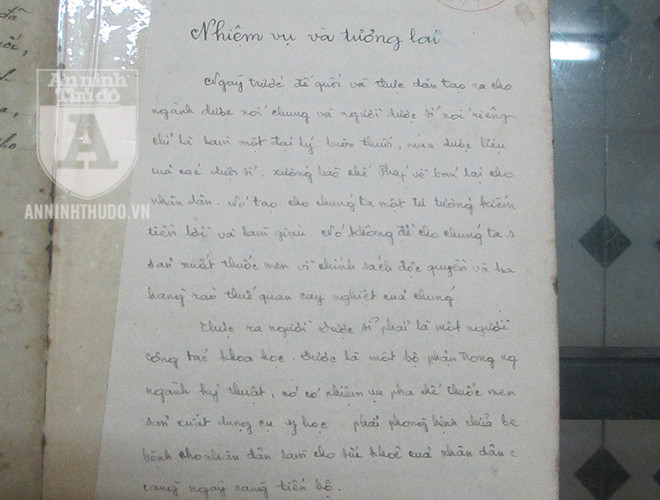 đã
An ninh
Thủ đô
A
ANNINHTHUDO.VN
Nhiệm vụ và tương lai
Ngày trước đế quốc và thực dân tạo ra cho
ngành dược nói chung và người dược sĩ nói riêng
chỉ là làm một đại lý buôn thuốc, mua dược liệu
của các dược sĩ, xưởng bào chế Pháp về bán lại cho
nhân dân. Nó tạo cho chúng ta một tư tưởng kiếm
tiền lời và làm giàu. Nó không để cho chúng ta s
sản xuất thuốc men vì chính sách độc quyền và ha
hàng rào thuế quan cay nghiệt của chúng
Thực ra người dược sĩ phải là một người
công tác khoa học. Dược là một bộ phận trong ng
ngành kỹ thuật, nó có nhiệm vụ pha chế thuốc men
sản xuất dụng cụ y học. phải phòng bệnh chữa bệ
bệnh cho nhân dân làm cho sức khoẻ của nhân dân c
càng ngày càng tiến bộ.